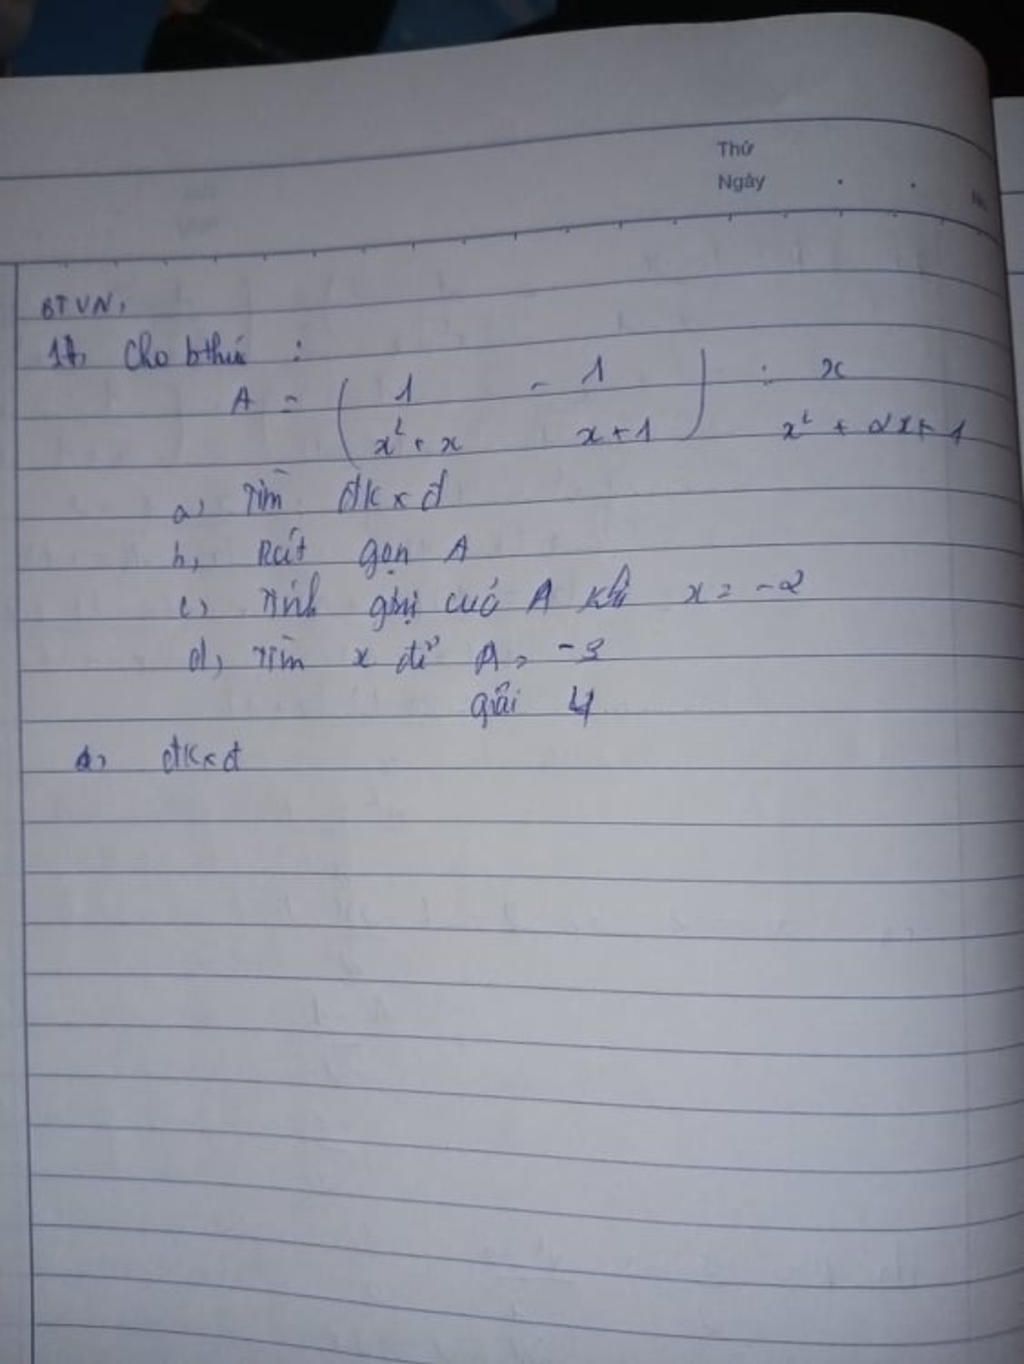 Thứ
Ngày
BTVN,
1, Cho bthức :
A = ( 1 - 1 ) : x
x² + x x+1 x² + 2x+ 1
a, Tìm đkxđ
b, Rút gọn A
c, Tính gtrị của A khi x = -2
d, Tìm x để A = -3
4
Giải
a, đkxđ